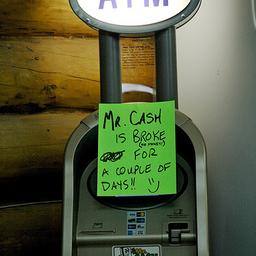 ATM
MR. CASH
IS BROKE
(NO MONEY)
FOR
A COUPLE OF
DAYS!!